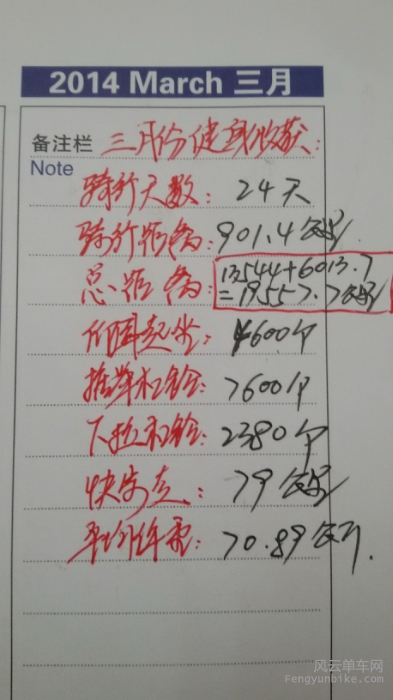 2014 March 三月
备注栏 三月份健身收获:
Note
骑行天数: 24天
骑行距离: 901.4公里
总距离: 13544+6013.7
=19557.7公里
仰卧起坐 4600个
推举杠铃: 7600个
下拉杠铃: 2380个
快步走: 79公里
平均体重: 70.89公斤.
风云单车网
Fengyunbike.com